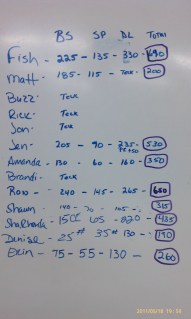 BS SP DL Total
Fish - 225 - 135 - 330 - 690
Matt - 185 - 115 - Tech - 200
Buzz - Tech
Rick - Tech
Jon - Tech
Jen - 205 - 90 - 235 - 530
Amanda - 130 - 60 - 160 - 350
Brandi - Tech
Ross - 240 - 145 - 265 - 650
Shawn - 140 - 70 - 105 - 315
150 65 220 435
Denise - 25# 35# 130 - 190
Erin - 75 - 55 - 130 - 260
2011/05/16